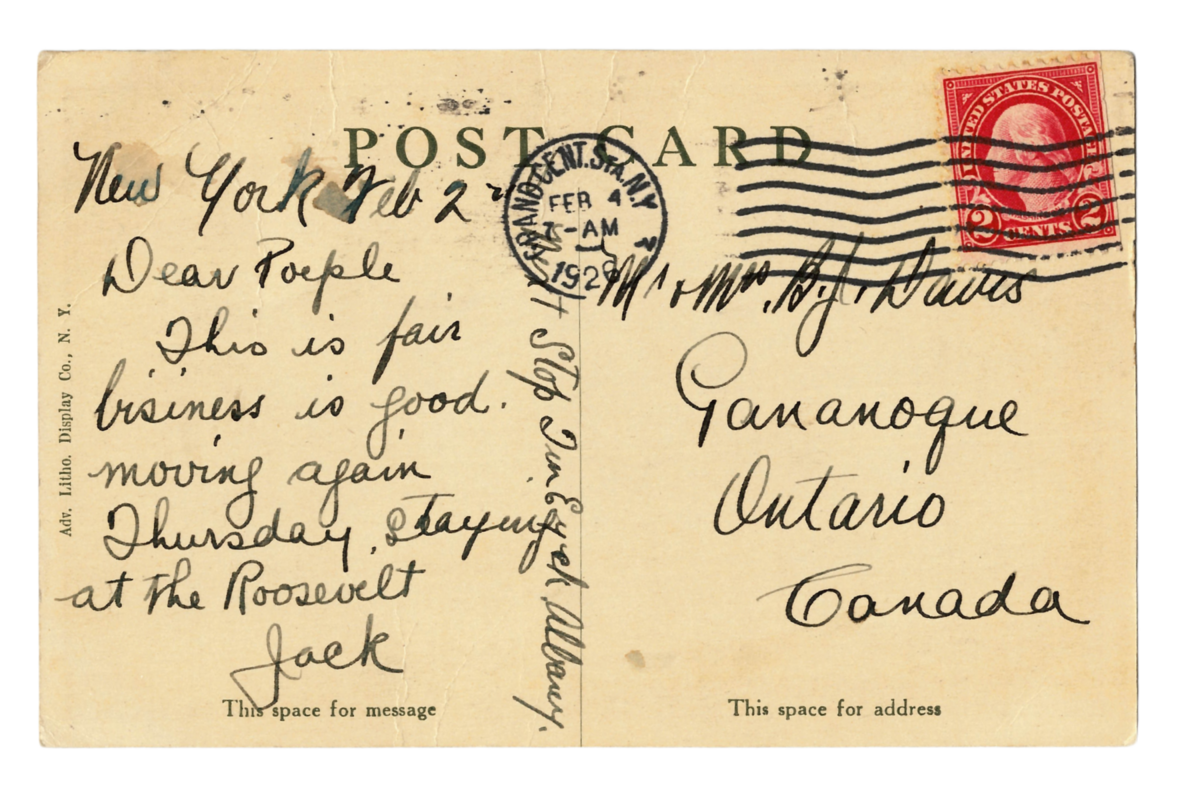 POST CARD
New York Feb 2nd
Dear Poeple
This is fair
bisiness is good.
moving again
Thursday, Staying
at the Roosevelt
Jack
+ Stop Tin Eyck Albany.
This space for message
Adv. Litho. Display Co., N. Y.
GRAND CENT. STA. N.Y.
FEB 4
7-AM
192
UNITED STATES POSTAGE
2 CENTS 2
Mr & Mrs. B.J. Davis
Gananoque
Ontario
Canada
This space for address